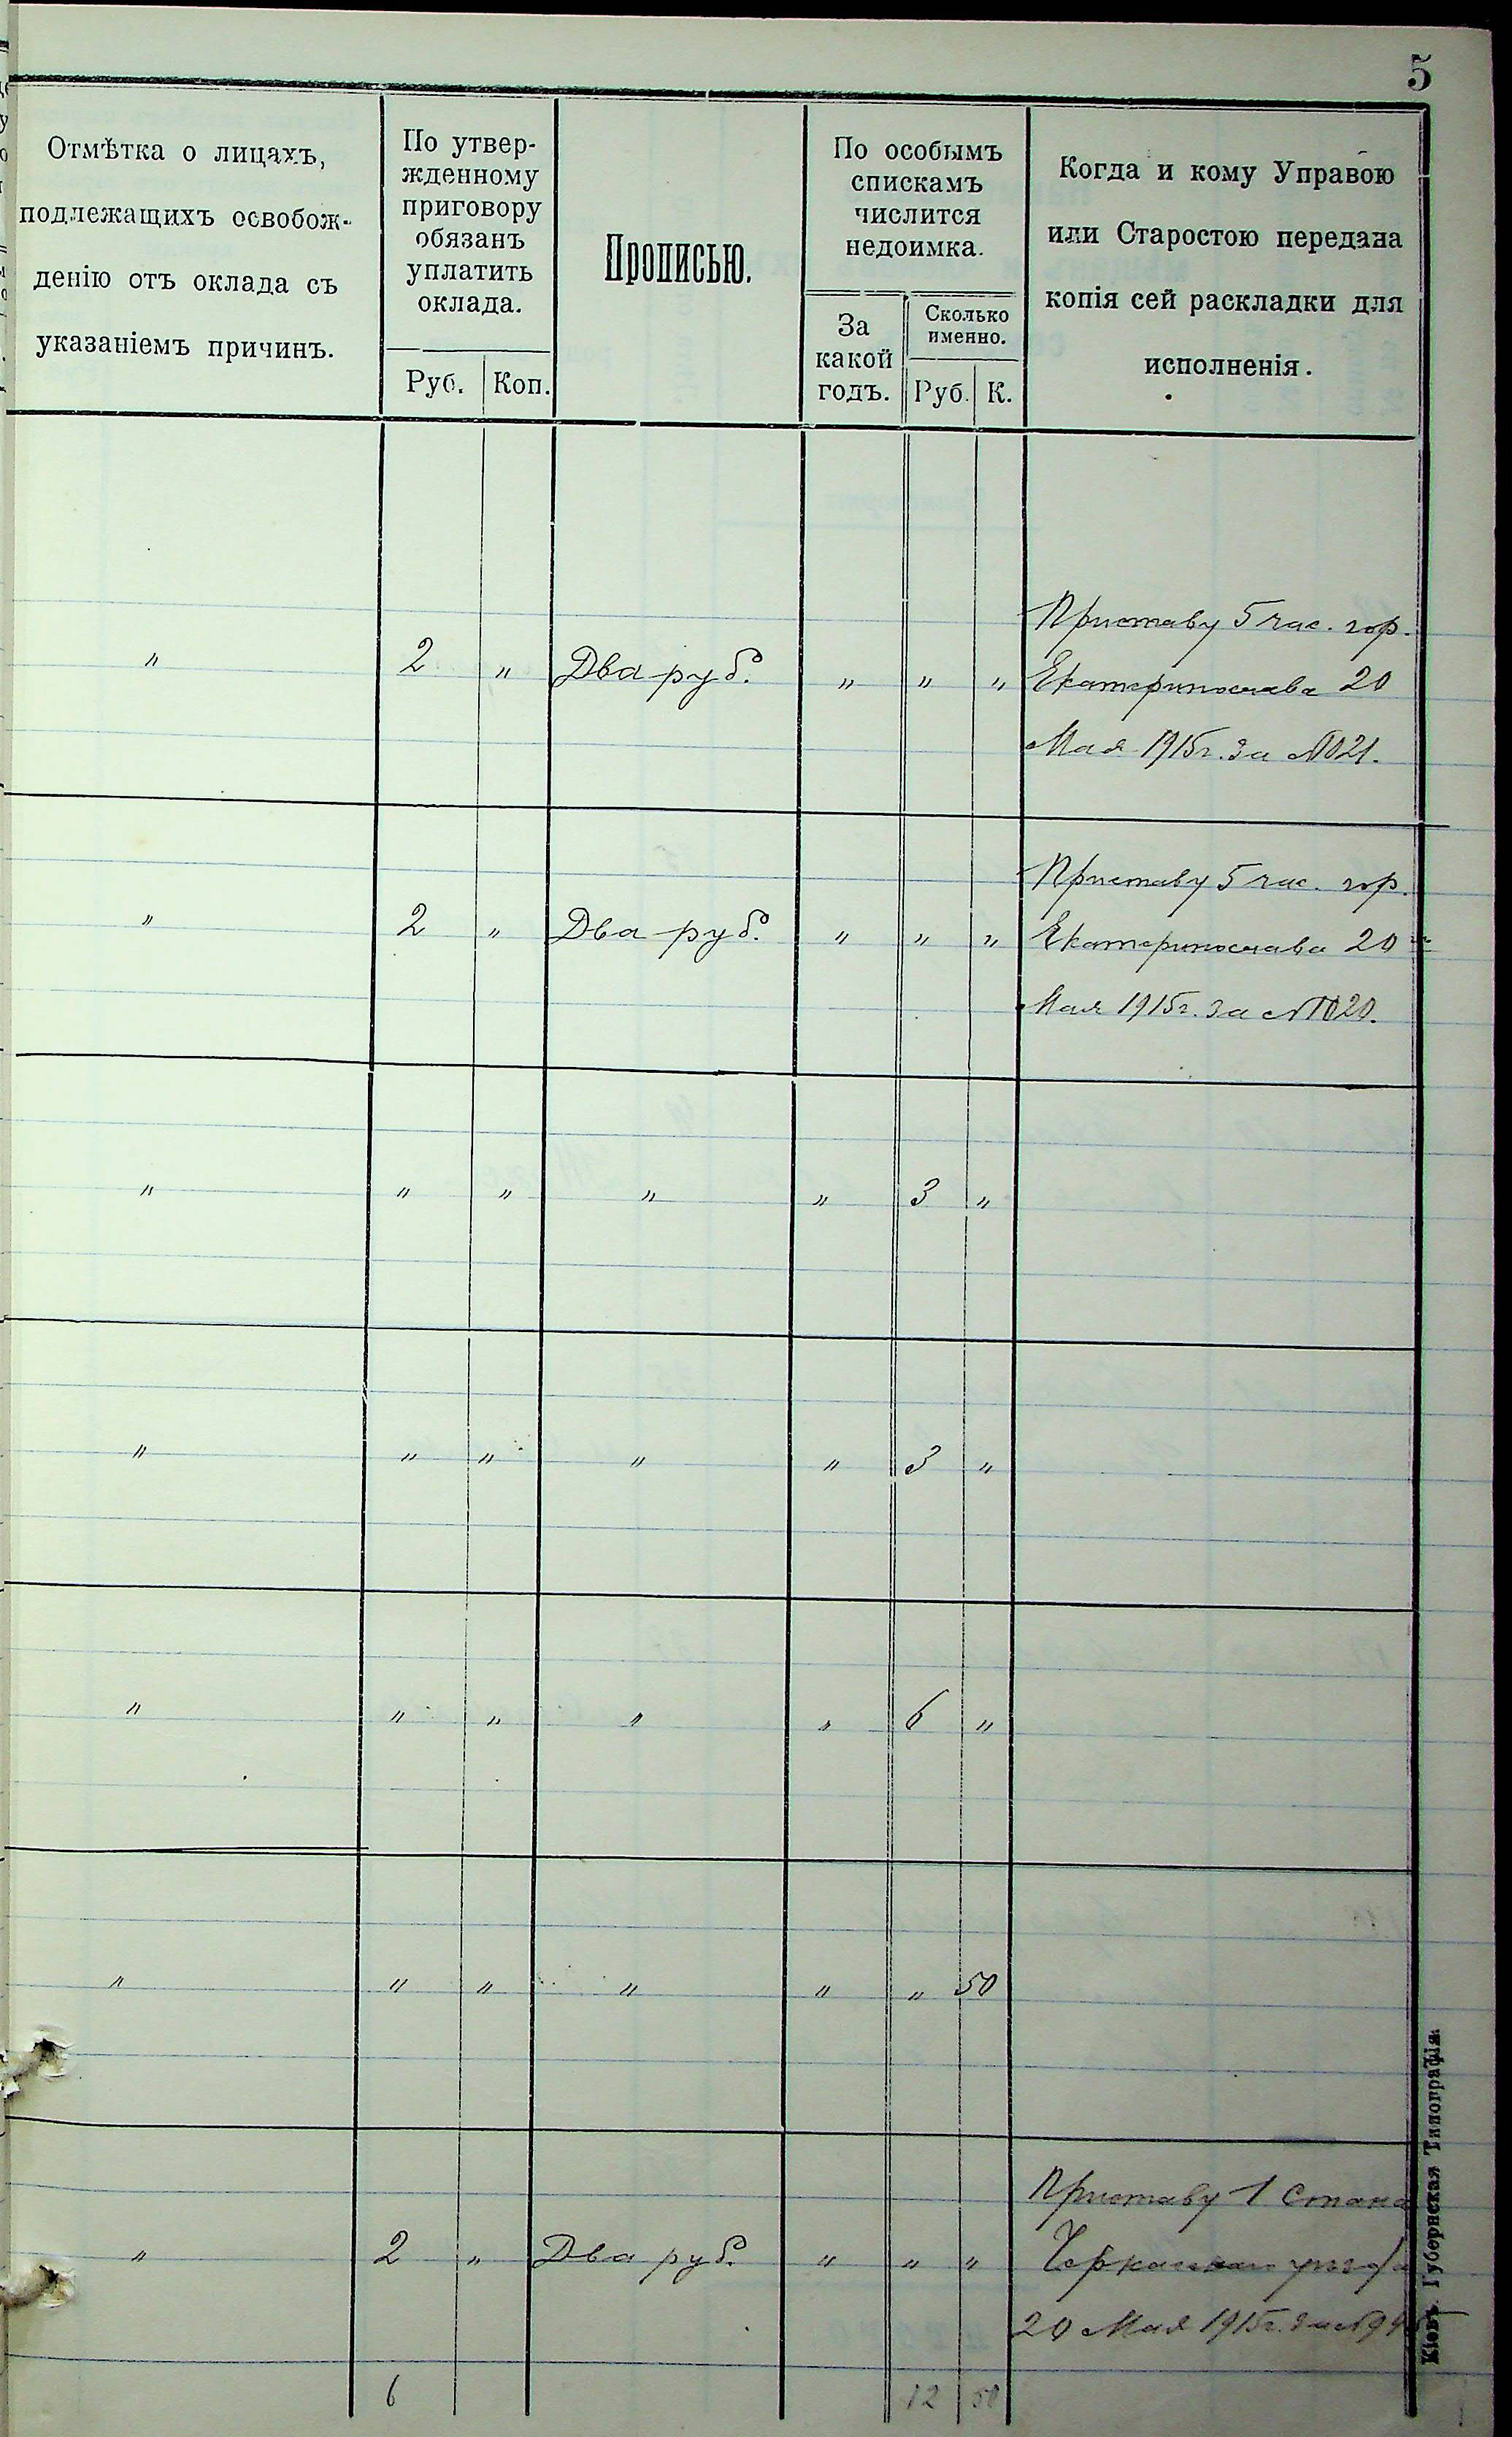 5
Отмѣтка о лицахъ,
подлежащихъ освобож-
денію отъ оклада съ
указаніемъ причинъ.
По утвер-
жденному
приговору
обязанъ
уплатить
оклада.
Руб. Коп.
Прописью.
По особымъ
спискамъ
числится
недоимка.
За
какой
годъ.
Сколько
именно.
Руб. К.
Когда и кому Управою
или Старостою передана
копія сей раскладки для
исполненія.
Приставу 5 час. гор.
" 2 " Два руб. " " " Екатеринослава 20
Мая 1915г. за №1021.
Приставу 5 час. гор.
" 2 " Два руб. " " " Екатеринослава 20
Мая 1915г. за №1020.
" " " " " 3 "
" " " " " 3 "
" " " " " 6 "
" " " " " " 50
Приставу 1 Стана
" 2 " Два руб. " " " Черкасскаго уѣзда
20 Мая 1915г. за №
6 12 50
Кіевъ. Губернская Типографія.